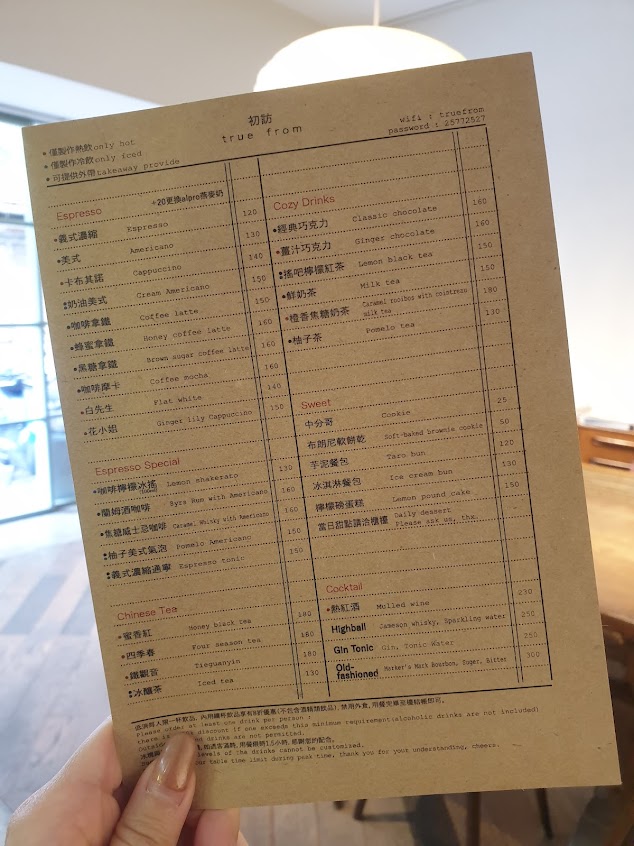 初訪
true from
wifi : truefrom
password : 25772527
• 僅製作熱飲only hot
• 僅製作冷飲only iced
• 可提供外帶takeaway provide
Espresso +20更換alpro燕麥奶
•義式濃縮 Espresso 120
•美式 Americano 130
•卡布其諾 Cappuccino 140
奶油美式 Cream Americano 150
•咖啡拿鐵 Coffee latte 150
•蜂蜜拿鐵 Honey coffee latte 160
•黑糖拿鐵 Brown sugar coffee latte 160
•咖啡摩卡 Coffee mocha 160
•白先生 Flat white 140
•花小姐 Ginger lily Cappuccino 150
Espresso Special
•咖啡檸檬冰搖 Lemon shakerato 130
•蘭姆酒咖啡 Rum with Americano 160
•焦糖威士忌咖啡 Whisky with Americano 160
柚子美式氣泡 Pomelo Americano 150
義式濃縮通寧 Espresso tonic 150
Chinese Tea
•蜜香紅 Honey black tea 180
•四季春 Four season tea 180
•鐵觀音 Tieguanyin 180
冰釀茶 Iced tea 130
Cozy Drinks
•經典巧克力 Classic chocolate 160
•薑汁巧克力 Ginger chocolate 160
搖吧檸檬紅茶 Lemon black tea 150
•鮮奶茶 Milk tea 150
•橙香焦糖奶茶 Caramel rooibos with cointreau milk tea 180
•柚子茶 Pomelo tea 130
Sweet
中分哥 Cookie 25
布朗尼軟餅乾 Soft-baked brownie cookie 50
芋泥餐包 Taro bun 120
冰淇淋餐包 Ice cream bun 130
檸檬磅蛋糕 Lemon pound cake 150
當日甜點請洽櫃檯 Daily dessert
Please ask us, thx.
Cocktail
•熱紅酒 Mulled wine 230
Highball Jameson whisky, Sparkling water 250
Gin Tonic Gin, Tonic Water 250
Old-fashioned Maker's Mark Bourbon, Sugar, Bitter 300
低消每人需一杯飲品, 內用續杯飲品享有8折優惠(不包含酒精類飲品), 禁用外食, 用餐完畢至櫃結帳即可。
Please order at least one drink per person ;
discount if one exceeds this minimum requirement(alcoholic drinks are not included)
drinks are not permitted.
如遇客滿時, 用餐限時1.5小時, 感謝您的配合。
levels of the drinks cannot be customized.
table time limit during peak time, thank you for your understanding, cheers.